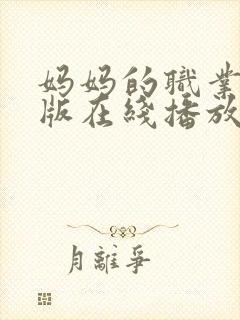 妈妈的職業
版在綫播放
月離爭